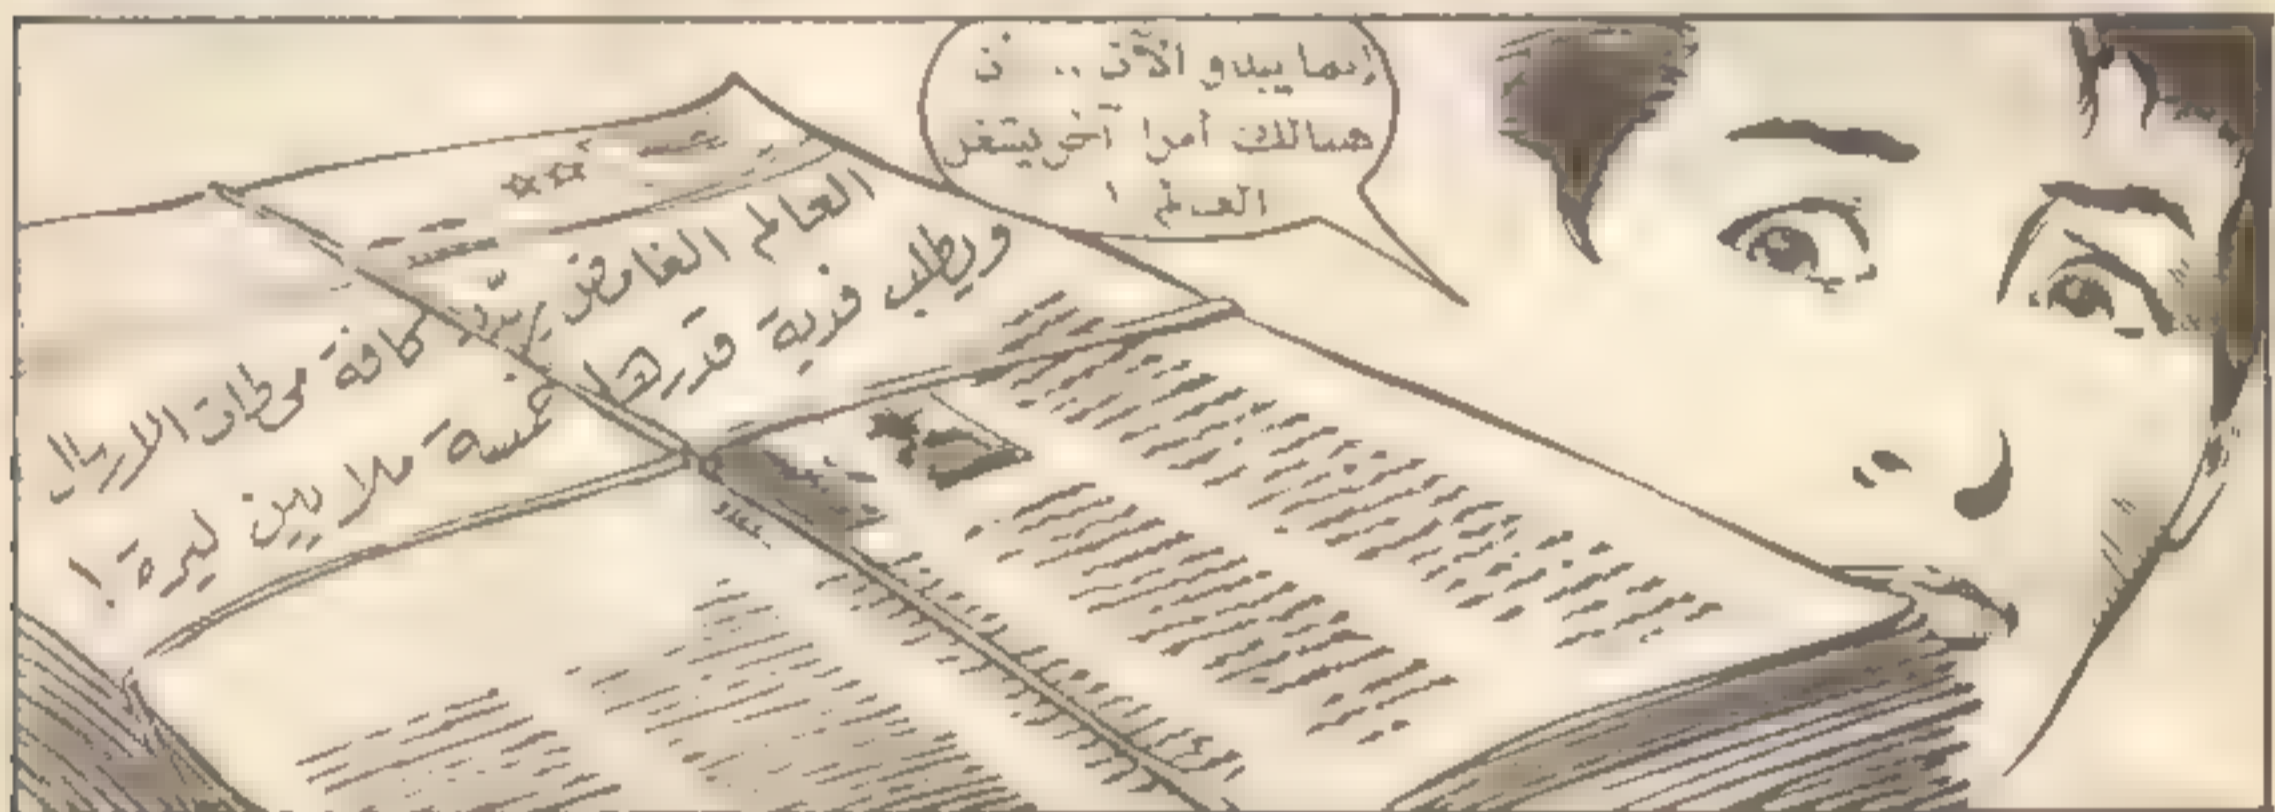 إنما يبدو الآن .. ن
هنالك أمرا آخر يشغل
العالم !
العالم الغامض يهدّد كافة محطات الارسال
ويطلب فدية قدرها خمسة ملايين ليرة !